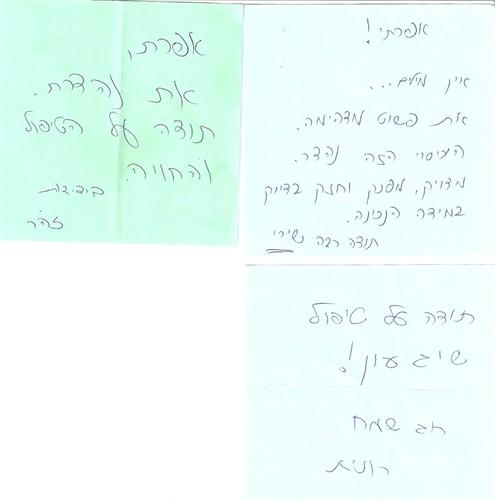 אפרת,
את נהדרת.
תודה על הטיפול
והחוויה.
בידידות
זהר
אפרתי!
אין מילים...
את פשוט מדהימה.
העיסוי הזה נהדר.
מדויק, מפנק וחזק בדיוק
במידה הנכונה.
תודה רבה שירי
תודה על טיפול
שיגעון!
חג שמח
רונית